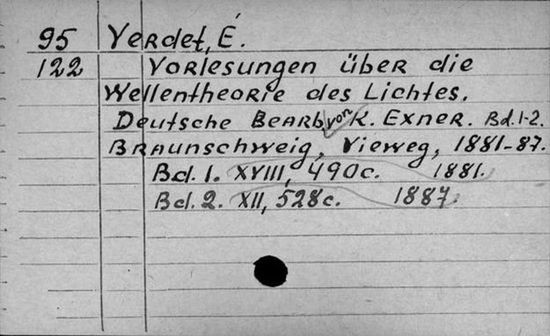 95 Verdet, É.
122 Vorlesungen über die
Wellentheorie des Lichtes.
Deutsche Bearb. von K. Exner. Bd. 1-2.
Braunschweig, Vieweg, 1881-87.
Bd. 1. XVIII, 490c. 1881.
Bd. 2. XII, 528c. 1887.